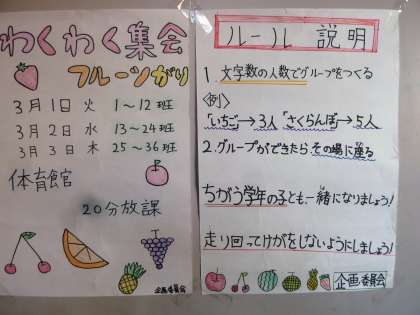 わくわく集会
フルーツがり
3月1日火 1〜12班
3月2日水 13〜24班
3月3日木 25〜36班
体育館
20分放課
企画委員会
ルール 説明
1. 文字数の人数でグループをつくる
〈例〉
「いちご」→3人「さくらんぼ」→5人
2. グループができたら その場に座る
ちがう学年の子とも一緒になりましょう!
走り回ってけがをしないようにしましょう!
企画委員会